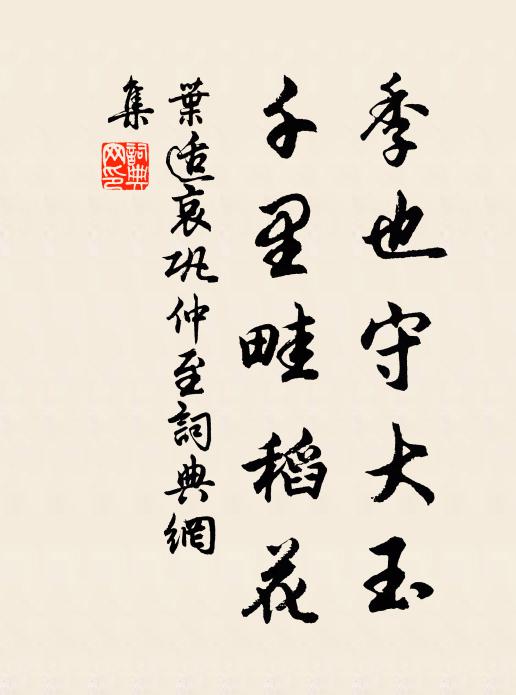 季也守大玉
千里畦稻花
葉适哀鞏仲至詞典網
集
詞典網印